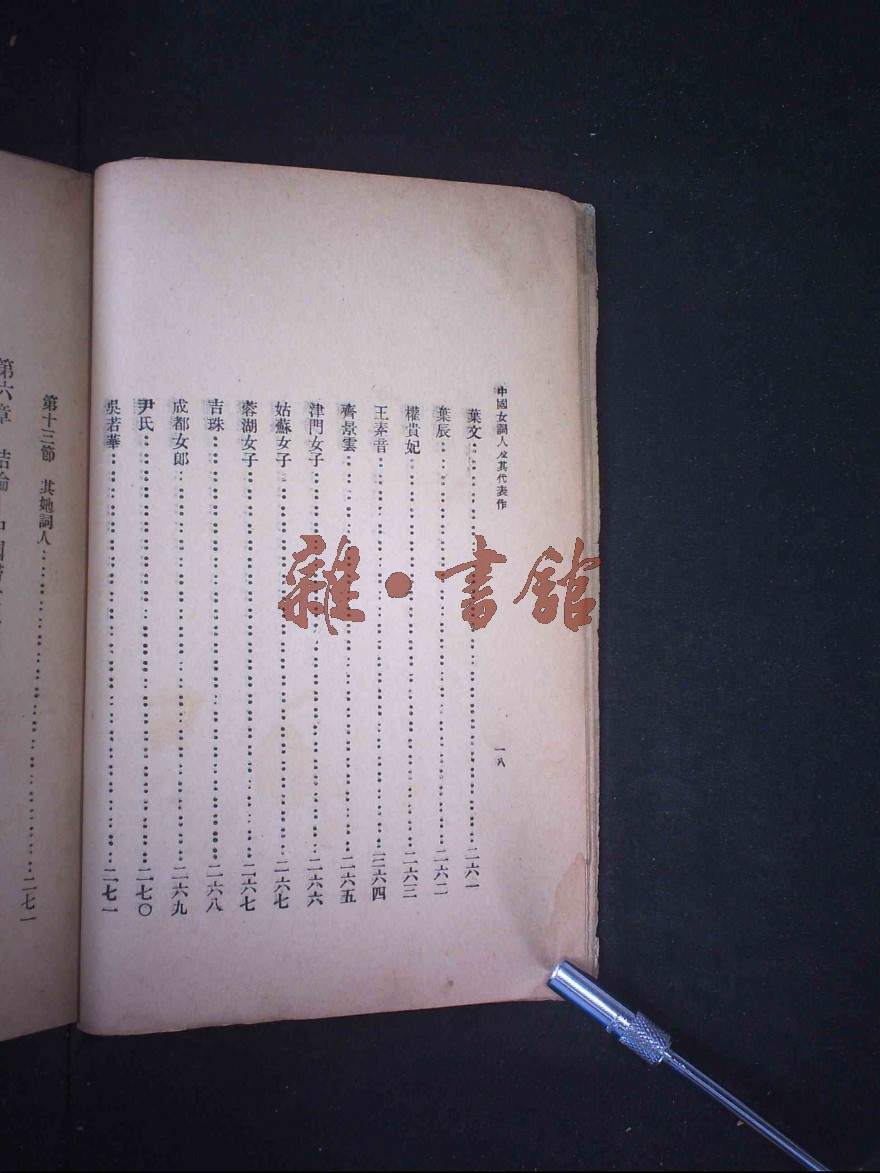 中國女詞人及其代表作
一八
葉文二六一
葉辰二六二
權貴妃二六三
王素音二六四
齊景雲二六五
津門女子二六六
姑蘇女子二六七
蓉湖女子二六七
吉珠二六八
成都女郎二六九
尹氏二七〇
吳若華二七一
第十三節 其她詞人二七一
第六章 結論
雜·書館